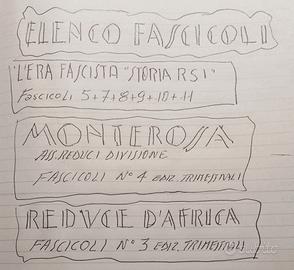 ELENCO FASCICOLI
L'ERA FASCISTA "STORIA RSI"
FASCICOLI 5+7+8+9+10+11
MONTEROSA
ASS. REDUCI DIVISIONE
FASCICOLI N° 4 EDIZ. TRIMESTRALI
REDUCE D'AFRICA
FASCICOLI N° 3 EDIZ. TRIMESTRALI
subito